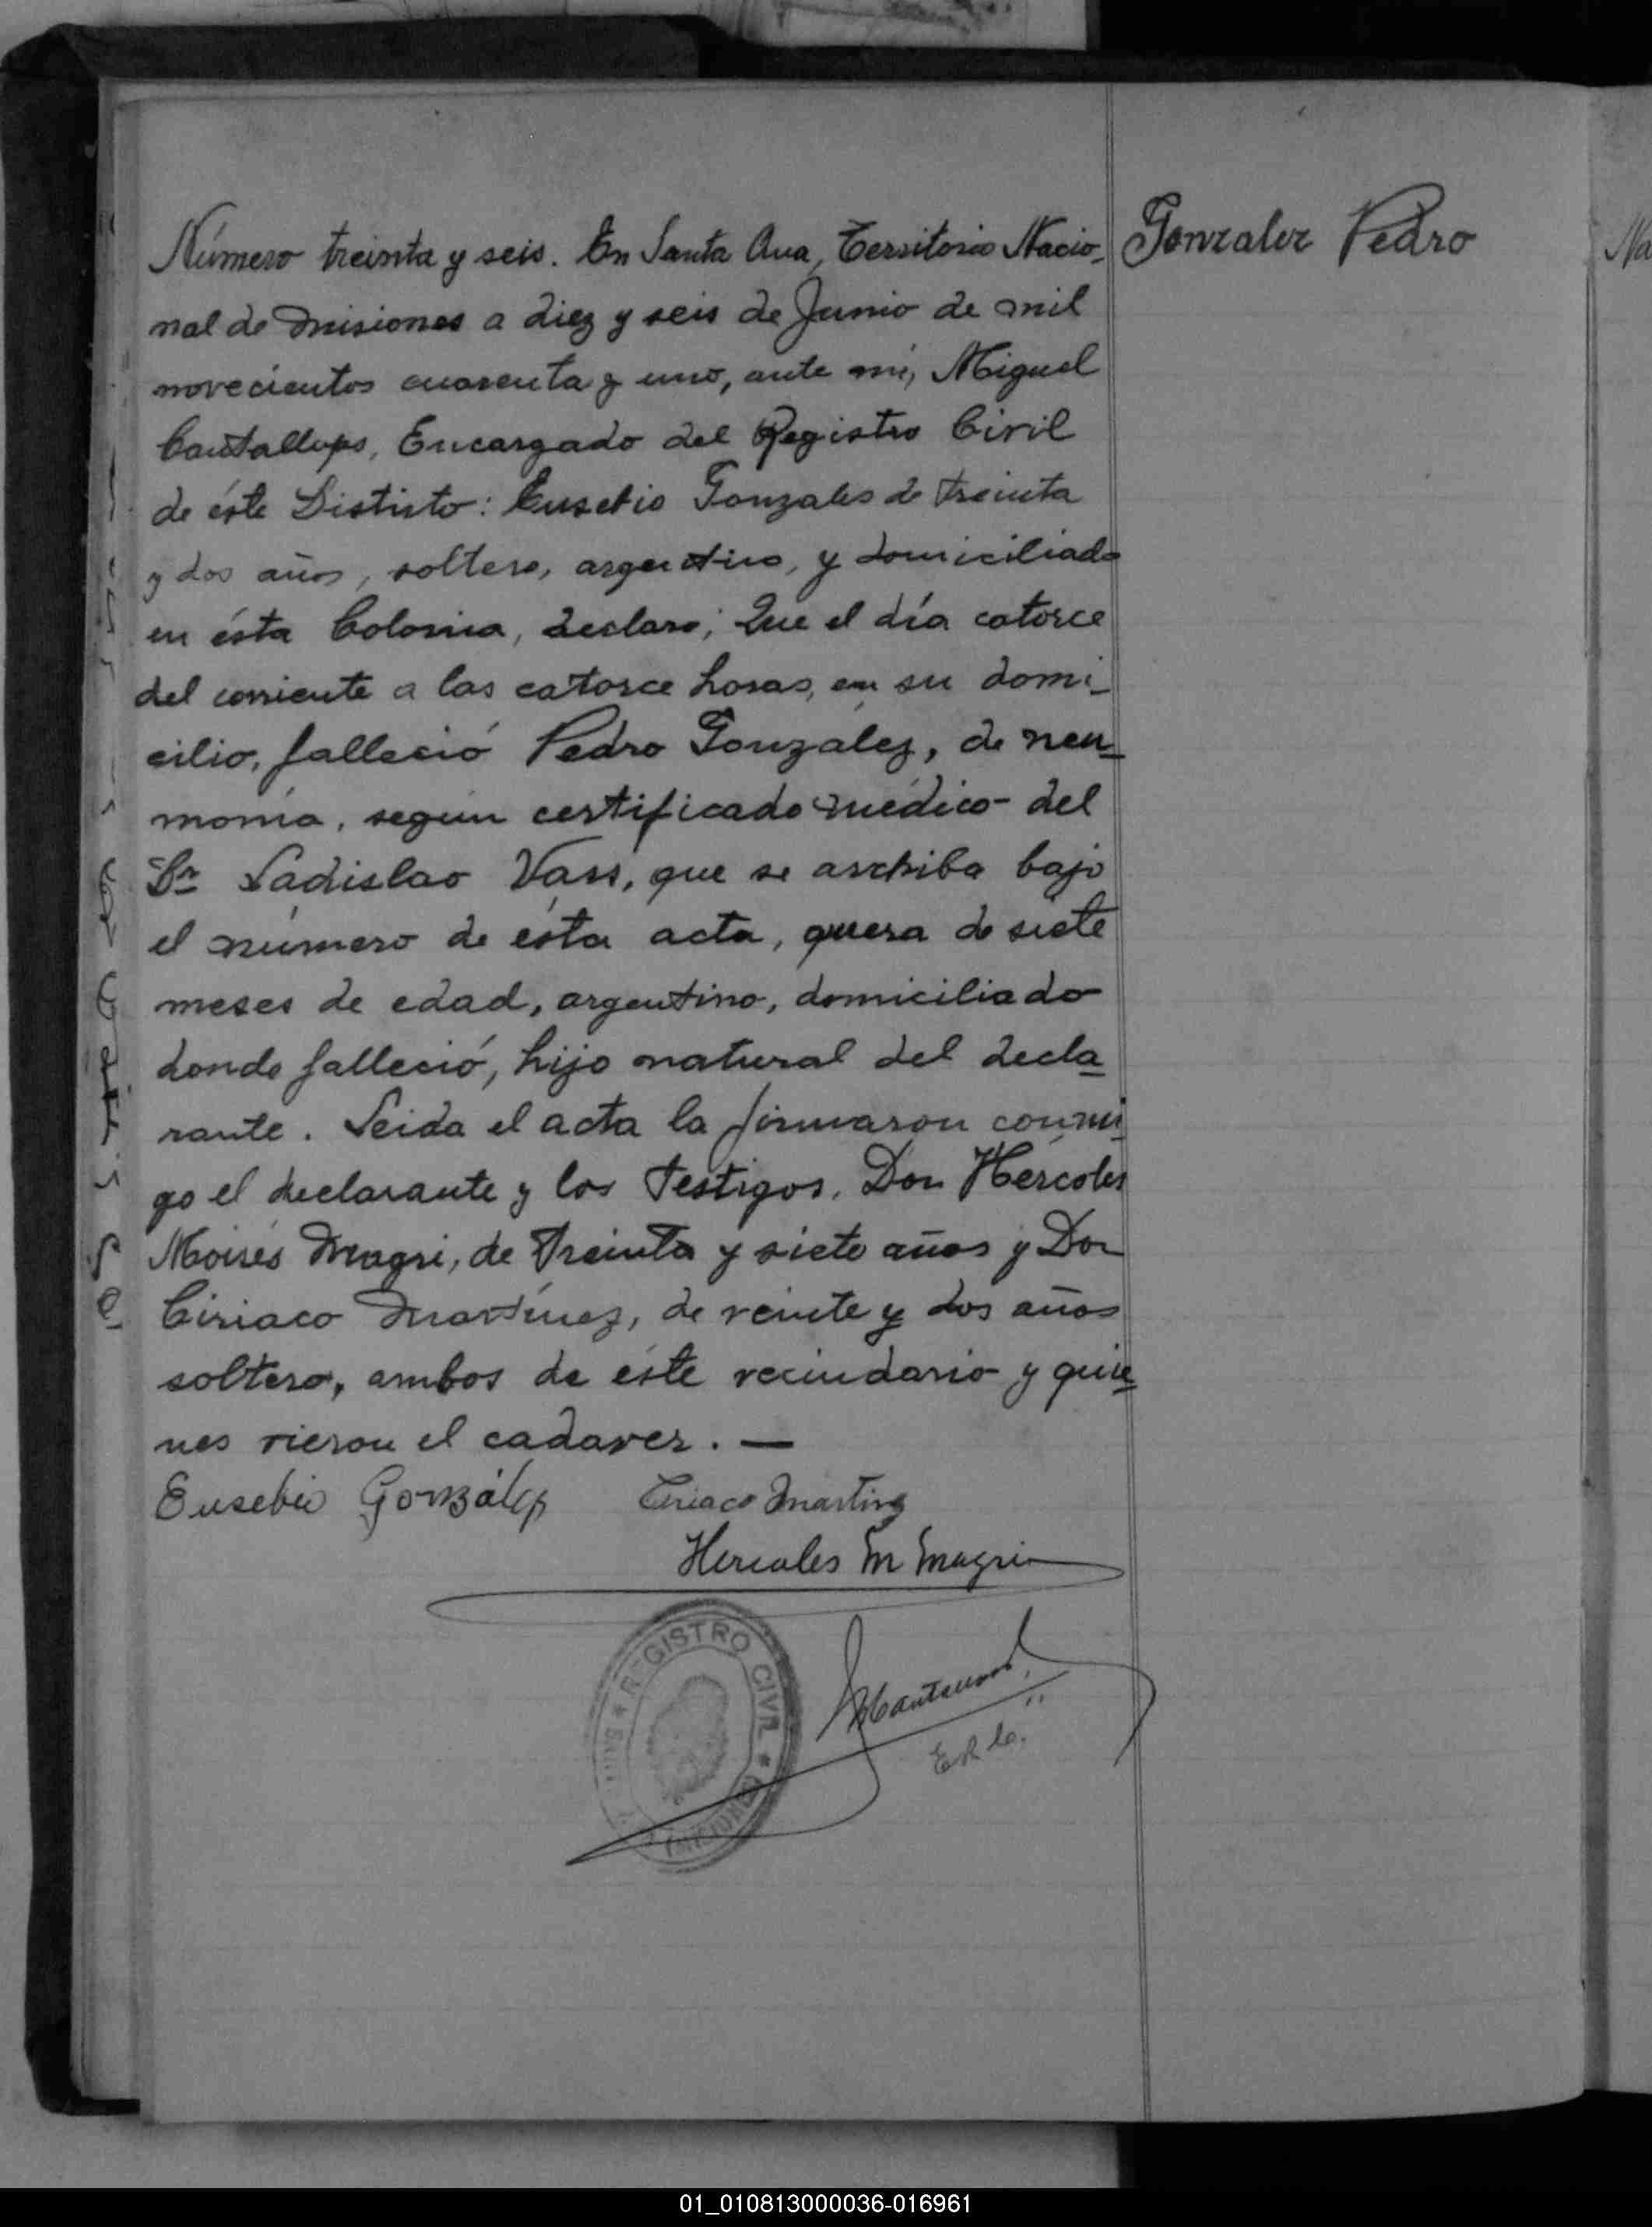 Número treinta y seis. En Santa Ana, Territorio Nacio-
nal de Misiones a diez y seis de Junio de mil
novecientos cuarenta y uno, ante mí, Miguel
Cantallops, Encargado del Registro Civil
de éste Distrito: Eusebio Gonzales de treinta
y dos años, soltero, argentino, y domiciliado
en ésta Colonia, declaro; Que el día catorce
del corriente a las catorce horas, en su domi-
cilio, falleció Pedro González, de neu-
monía, según certificado médico del
Dr Ladislao Vass, que se archiba bajo
el número de ésta acta, quera de siete
meses de edad, argentino, domiciliado
donde falleció, hijo natural del decla-
rante. Leida el acta la firmaron conmi-
go el declarante y los testigos, Don Hércoles
Moisés Magri, de treinta y siete años y Don
Ciriaco Martínez, de veinte y dos años
soltero, ambos de éste vecindario y quie-
nes vieron el cadaver. —
Eusebio González Ciriaco Martinez
Hercoles M Magri
REGISTRO CIVIL * MISIONES
E R C.
Gonzalez Pedro
01_010813000036-016961